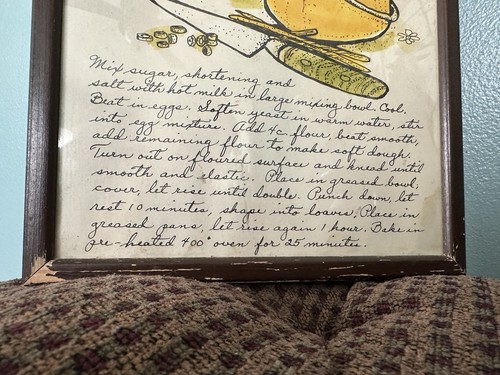 Mix sugar, shortening and
salt with hot milk in large mixing bowl. Cool.
Beat in eggs. Soften yeast in warm water, stir
into egg mixture. Add 4c. flour, beat smooth,
add remaining flour to make soft dough.
Turn out on floured surface and knead until
smooth and elastic. Place in greased bowl,
cover, let rise until double. Punch down, let
rest 10 minutes, shape into loaves. Place in
greased pans, let rise again 1 hour. Bake in
pre-heated 400° oven for 25 minutes.